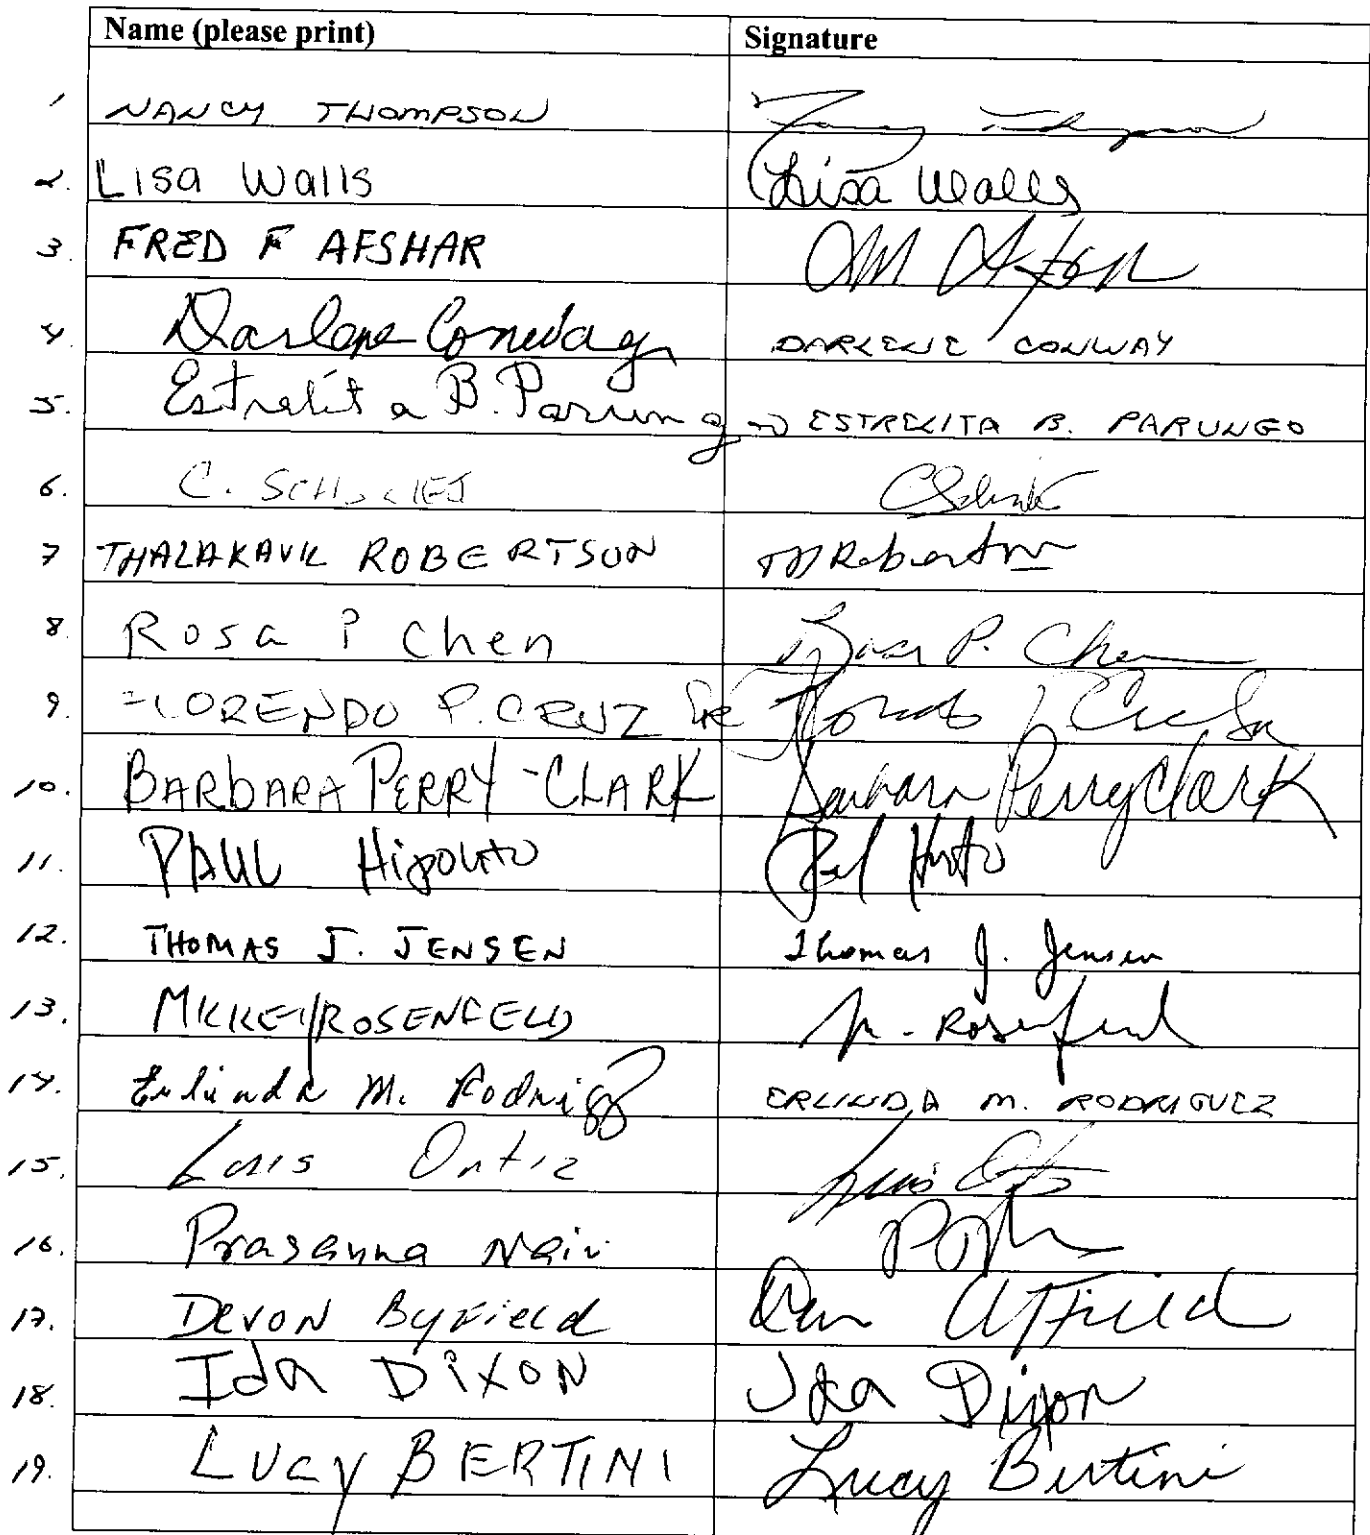 Name (please print) Signature
1 NANCY THOMPSON Nancy Thompson
2. Lisa Walls Lisa Walls
3. FRED F AFSHAR
4. Darlene Conway DARLENE CONWAY
5. Estrelita B. Parungo ESTRELITA B. PARUNGO
6. C.
7 THALAKAVIL ROBERTSON Robertson
8. Rosa P Chen Rosa P. Chen
9. FLORENDO P. CRUZ SR
10. BARBARA PERRY-CLARK Barbara Perry Clark
11. PAUL Hipolito
12. THOMAS J. JENSEN Thomas J. Jensen
13. MICKEY ROSENFELD M. Rosenfeld
14. Erlinda M. Rodriguez ERLINDA M. RODRIGUEZ
15. Luis Ortiz Luis
16. Prasanna Nair
17. Devon Byfield
18. Ida DiXON Ida Dixon
19. Lucy BERTINI Lucy Bertini